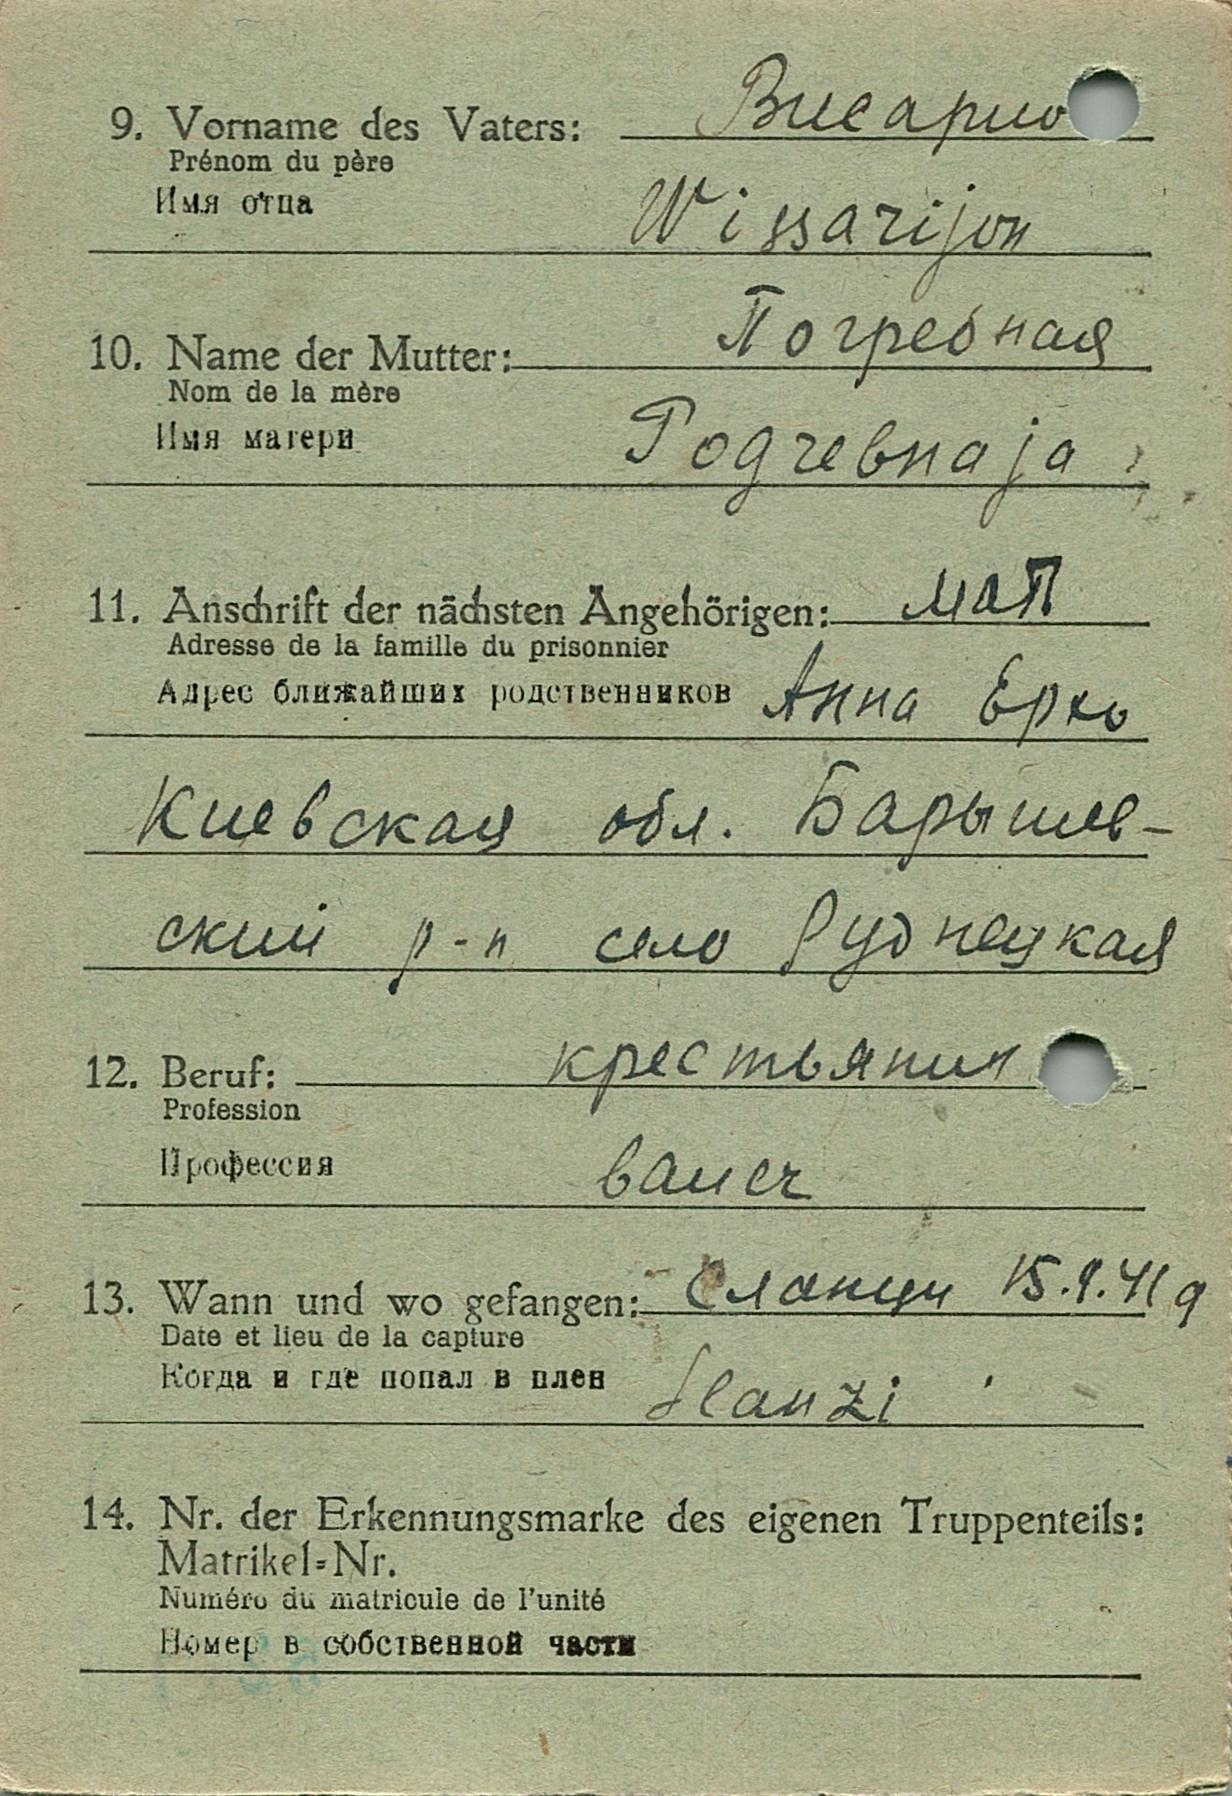 9. Vorname des Vaters: Висарио
Prénom du père
Имя отца
Wissarijon
10. Name der Mutter: Погребная
Nom de la mère
Имя матери
Podgrebnaja
11. Anschrift der nächsten Angehörigen: мат
Adresse de la famille du prisonnier
Адрес ближайших родственников Анна
Киевская обл. Барышев-
ский р-н село Рудницкая
12. Beruf: крестьянин
Profession
Профессия
bauer
13. Wann und wo gefangen: Сланцы
Date et lieu de la capture
Когда и где попал в плен
Slanzi
14. Nr. der Erkennungsmarke des eigenen Truppenteils:
Matrikel=Nr.
Numéro du matricule de l'unité
Номер в собственной части